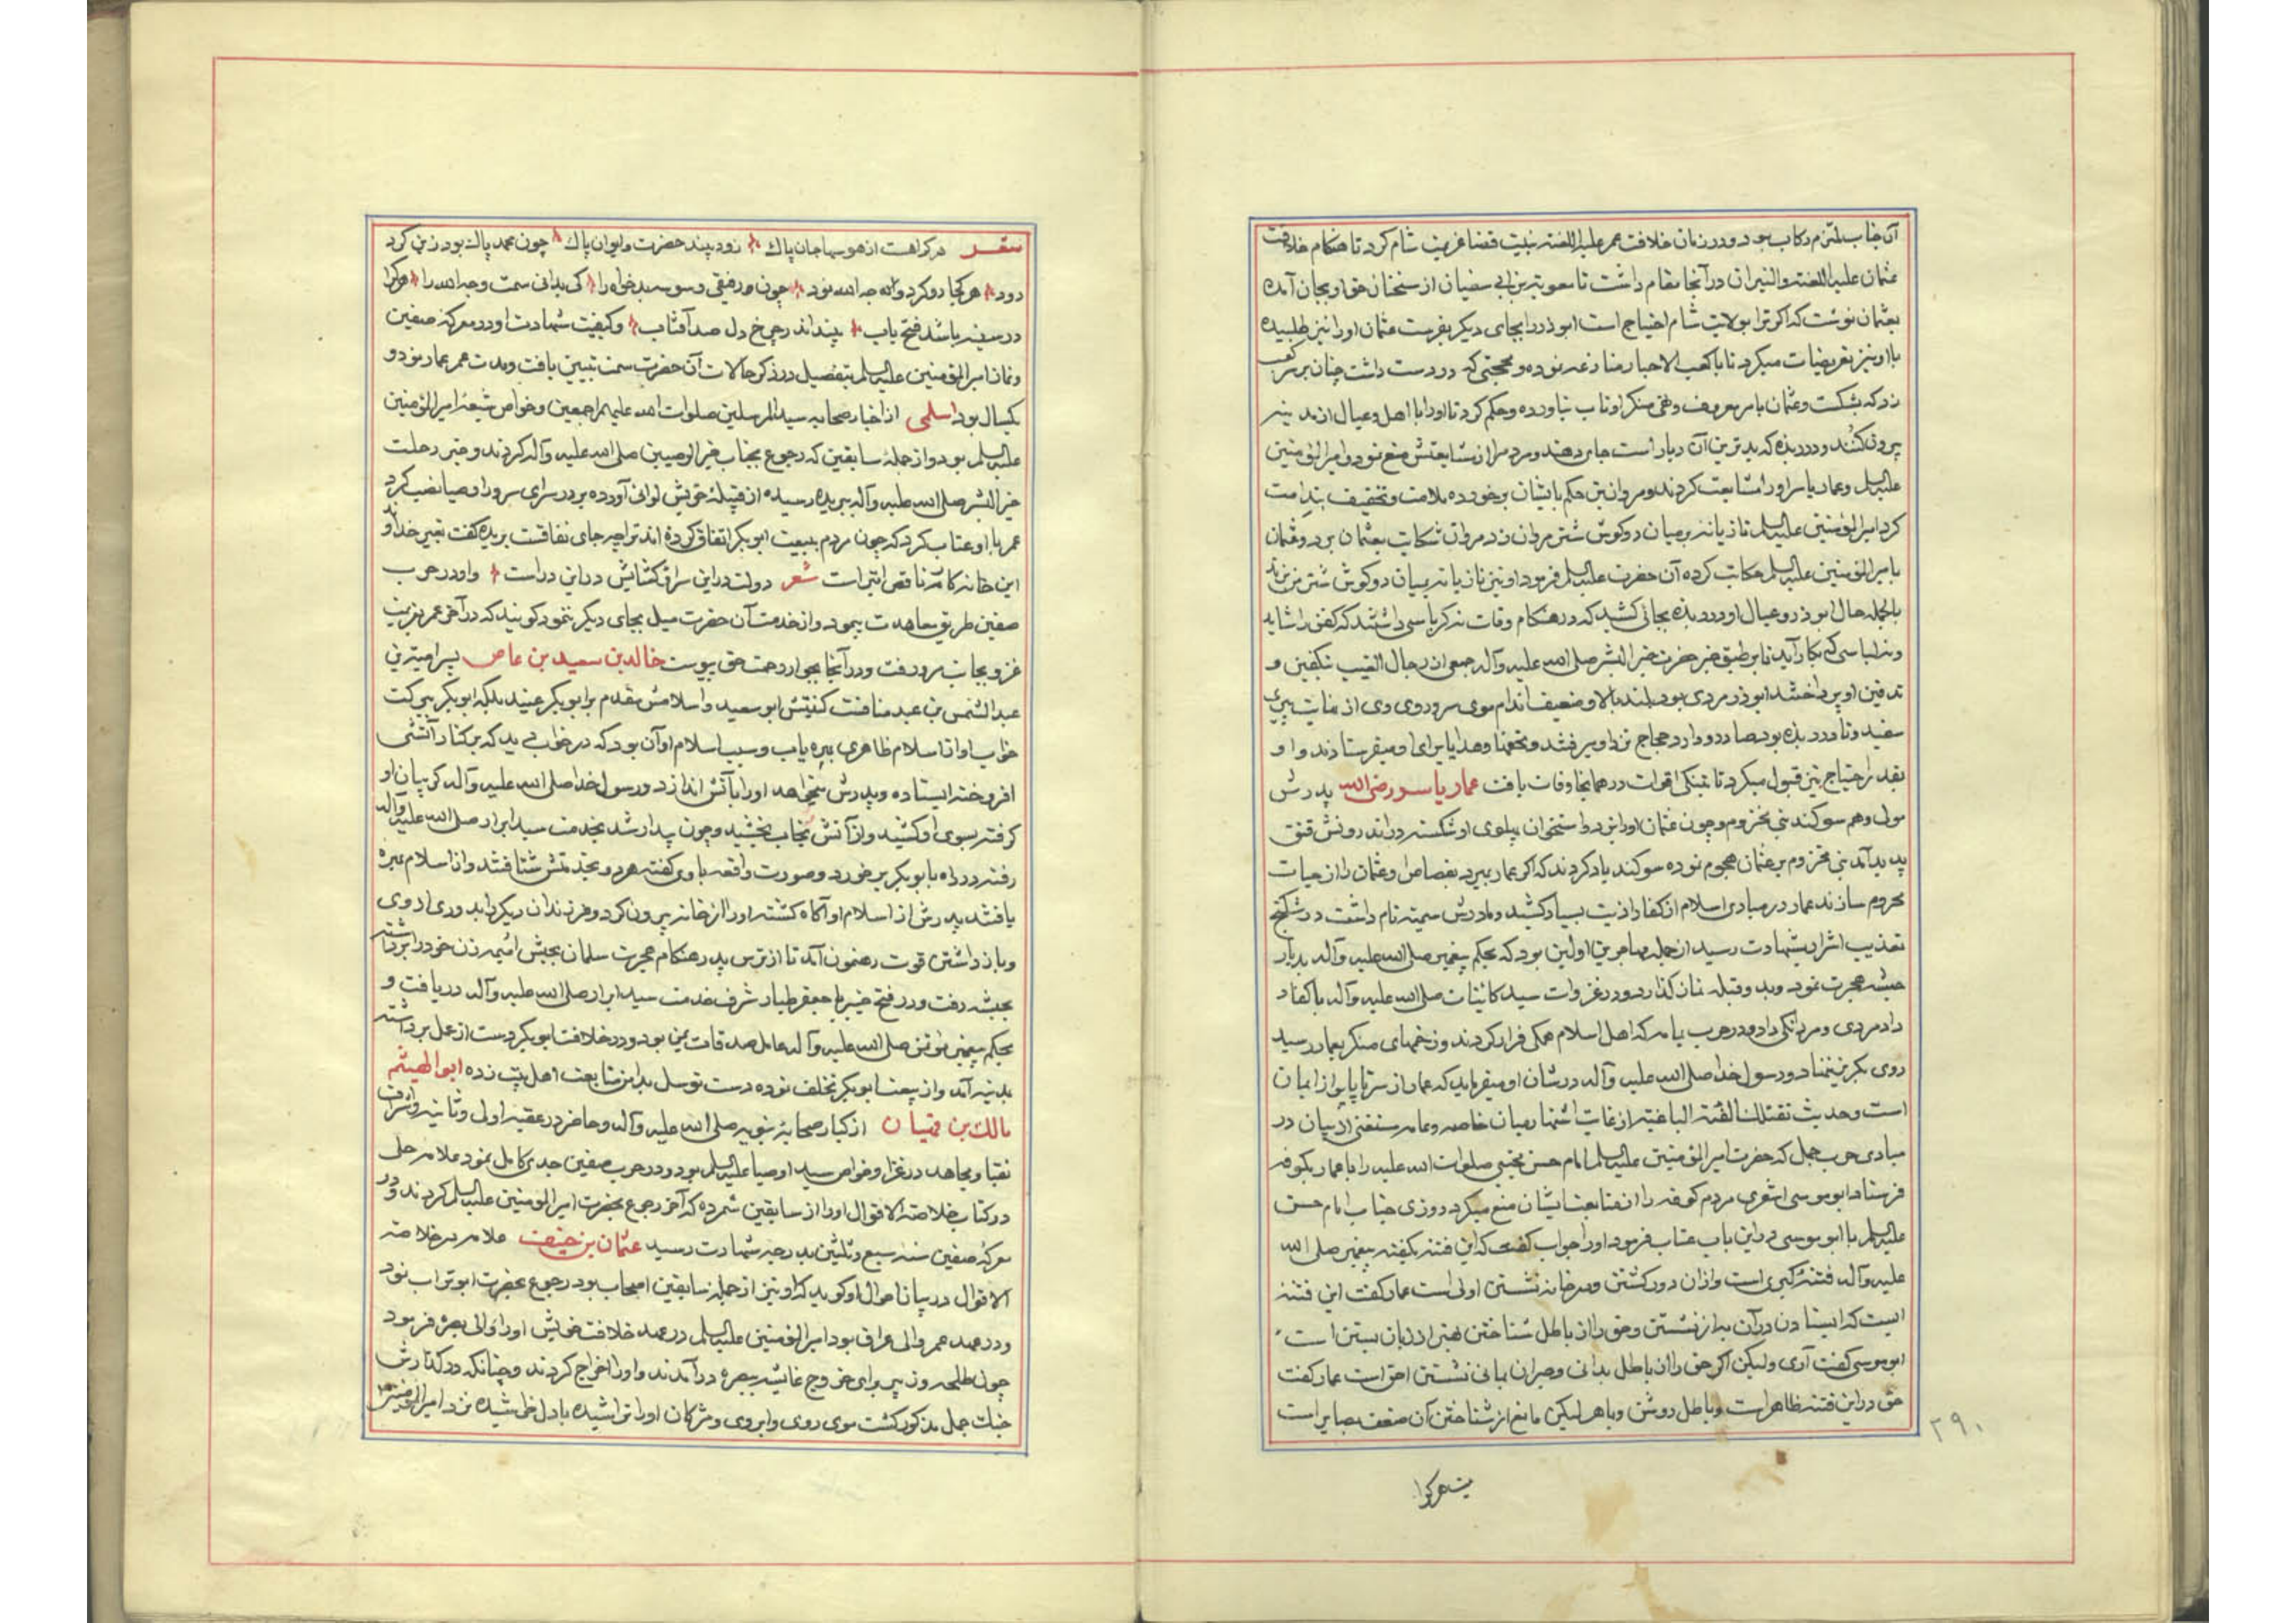 آن جناب ملتزم رکاب بود و در زمان خلافت عمر علیه اللعنه بنیت قضا عزیمت شام کرد تا هنکام خلافت
عثمان علیه اللعنه والنیران در آنجا مقام داشت تا معویه بن ابی سفیان از سخنان حق او بجان آمده
بعثمان نوشت که اکر ترا بولایت شام احتیاج است ابوذر را بجای دیکر بفرست عثمان او را نیز طلبیده
با او نیز تعریضات میکرد تا با کعب الاحبار منازعه نموده و محجنی که در دست داشت چنان بر سر کعب
زد که بشکست و عثمان بامر معروف و نهی منکر او تاب نیاورده و حکم کرد تا او را با اهل و عیال از مدینه
بیرون کنند و در ربذه که بدترین آن دیار است جای دهند و مردم را از مشایعتش منع نمود ولی امیرالمؤمنین
علیه السلم و عمار یاسر او را مشایعت کردند و مروان بن حکم بایشان برخورده ملامت و تخفیف بندامت
کرد امیرالمؤمنین علیه السلم تازیانه بر میان دو کوش شتر مروان زد مروان شکایت بعثمان برد و عثمان
با میرالمؤمنین علیه السلم حکایت کرده آن حضرت علیه السلم فرمود او نیز تازیانه بمیان دو کوش شتر من بزند
بالجمله حال ابوذر و عیال او در ربذه بجائی کشید که در هنکام وفات نه کرباسی داشتند که کفن را شاید
و نه لباسی که بکار آید تا بر طبق خبر حضرت خیر البشر صلی الله علیه وآله جمعی از رجال الغیب بتکفین و
تدفین او پرداختند ابوذر مردی بود بلند بالا و ضعیف اندام موی سر و روی وی از غایت پیری
سفید و تا در ربذه بود صادر و وارد حجاج نزد او میرفتند و تحفها و هدایا برای او میفرستادند و او
بقدر احتیاج نیز قبول میکرد تا بتنکی اقوات در همانجا وفات یافت عمار یاسر رضی الله پدرش
مولی و هم سوکند بنی مخزوم و چون عثمان او را بزد و استخوان پهلوی او شکسته در اندرونش فتق
پدید آمد بنی مخزوم بر عثمان هجوم نموده سوکند یاد کردند که اکر عمار بمیرد بقصاص او عثمان را از حیات
محروم سازند عمار در مبادی اسلام از کفار اذیت بسیار کشید و مادرش سمیه نام داشت در شکنجه
تعذیب اشرار بشهادت رسید از جمله مهاجرین اولین بود که بحکم پیغمبر صلی الله علیه وآله بدیار
حبشه هجرت نمود و بدو قبله نماز کذارد و در غزوات سید کائنات صلی الله علیه وآله با کفار
داد مردی و مردانکی داد و در حرب یمامه که اهل اسلام همکی فرار کردند و زخمهای منکر بعمار رسید
روی بکریز ننهاد و رسول خدا صلی الله علیه وآله در شان او میفرماید که عمار از سر تا پا پر از ایمان
است و حدیث تقتلک الفئة الباغیه از غایت اشتهار میان خاصه و عامه مستغنی از بیان در
مبادی حرب جمل که حضرت امیرالمؤمنین علیه السلم امام حسن مجتبی صلوات الله علیه را با عمار بکوفه
فرستاد ابوموسی اشعری مردم کوفه را از متابعت ایشان منع میکرد روزی جناب امام حسن
علیه السلم با ابوموسی در این باب عتاب فرمود او را جواب کفت که این فتنه بکفته پیغمبر صلی الله
علیه وآله فتنه کبری است و از آن دور کشتن و در خانه نشستن اولی است عمار کفت این فتنه
ایست که ایستادن در آن به از نشستن و حق را از باطل شناختن بهتر از زبان بستن است
ابوموسی کفت آری ولیکن اکر حق را از باطل بدانی و حیران بمانی نشستن احق است عمار کفت
حق در این فتنه ظاهر است و باطل روشن و باهر لیکن مانع از شناختن آن ضعف بصایر است
۲۹۰
شعر هر کرا
شعر هر کرا هست از هوسها جان پاک زود بیند حضرت و ایوان پاک چون محمد پاک بود زین کرد
دود هر کجا رو کرد وجه الله بود چون رفیقی وسوسه بدخواه را کی بدانی ثم وجه الله را هر کرا
در سینه باشد فتح باب بیند اندر چرخ دل صد آفتاب و کیفیت شهادت او در معرکه صفین
و نماز امیرالمؤمنین علیه السلم بتفصیل در ذکر حالات آن حضرت سمت تبیین یافت و مدت عمر عمار نود و
یکسال بود اسلمی از اخیار صحابه سید المرسلین صلوات الله علیهم اجمعین و خواص شیعه امیرالمؤمنین
علیه السلم بود و از جمله سابقین که رجوع بجناب خیر الوصیین صلی الله علیه وآله کردند و خبر رحلت
خیر البشر صلی الله علیه وآله ببریده رسیده از قبیله خویش لوائی آورده بر در سرای سرور اوصیا نصب کرد
عمر با او عتاب کرد که چون مردم ببیعت ابوبکر اتفاق کرده اند ترا چه جای نفاقست بریده کفت بغیر خداوند
این خانه کار ما ناقص ابتر است شعر دولت در این سرا و کشایش در این در است و او در حرب
صفین طریق معاهدت پیمود و از خدمت آن حضرت میل بجای دیکر ننمود کویند که در آخر عمر بعزیمت
غزو بجانب مرو رفت و در آنجا بجوار رحمت حق پیوست خالد بن سعید بن عاص پسر امیة بن
عبد الشمس بن عبد مناف کنیتش ابو سعید و اسلامش مقدم بر ابوبکر عنید بلکه ابوبکر ببرکت
خواب او از اسلام ظاهری بهره یاب و سبب اسلام او آن بود که در خواب دید که بر کنار آتشی
افروخته ایستاده و پدرش میخواهد او را بآتش اندازد و رسول خدا صلی الله علیه وآله کریبان او
کرفته بسوی او کشید و از آتش نجات بخشید و چون بیدار شد بخدمت سید ابرار صلی الله علیه وآله
رفته در راه با بوبکر برخورد و صورت واقعه باوی کفته هر دو بخدمتش شتافتند و از اسلام بهره
یافتند پدرش از اسلام او آکاه کشته او را از خانه بیرون کرد و فرزندان دیکر را بدوری از وی
و باز داشتن قوت رهنمون آمد تا از ترس پدر هنکام هجرت سلمان بحبش امیمه زن خود را برداشته
بحبشه رفت و در فتح خیبر با جعفر طیار شرف خدمت سید ابرار صلی الله علیه وآله دریافت و
بحکم پیغمبر مؤتمن صلی الله علیه وآله عامل صدقات یمن بود و در خلافت ابوبکر دست از عمل برداشته
بمدینه آمد و از بیعت ابوبکر تخلف نموده دست توسل بدامن متابعت اهل بیت زده ابوالهیثم
مالک بن تیهان از کبار صحابه نبویه صلی الله علیه وآله و حاضر در عقبه اولی و ثانیه و اشراف
نقبا و مجاهد در غزا و خواص سید اوصیا علیه السلم بود و در حرب صفین جدی کامل نمود علامه حلی
در کتاب خلاصة الاقوال او را از سابقین شمرده که آخر رجوع بحضرت امیرالمؤمنین علیه السلم کردند و در
معرکه صفین سنه سبع و ثلثین بدرجه شهادت رسید عثمان بن حنیف علامه در خلاصه
الاقوال در بیان احوال او کوید که او نیز از جمله سابقین اصحاب بود رجوع بحضرت ابوتراب نمود
و در عهد عمر والی عراق بود امیرالمؤمنین علیه السلم در عهد خلافت خویش او را والی بصره فرمود
چون طلحه و زبیر برای خروج عایشه ببصره درآمدند و او را اخراج کردند و چنانکه در کذارش
جنک جمل مذکور کشت موی روی و ابروی و مژکان او را تراشیده با دل خراشیده نزد امیرالمؤمنین